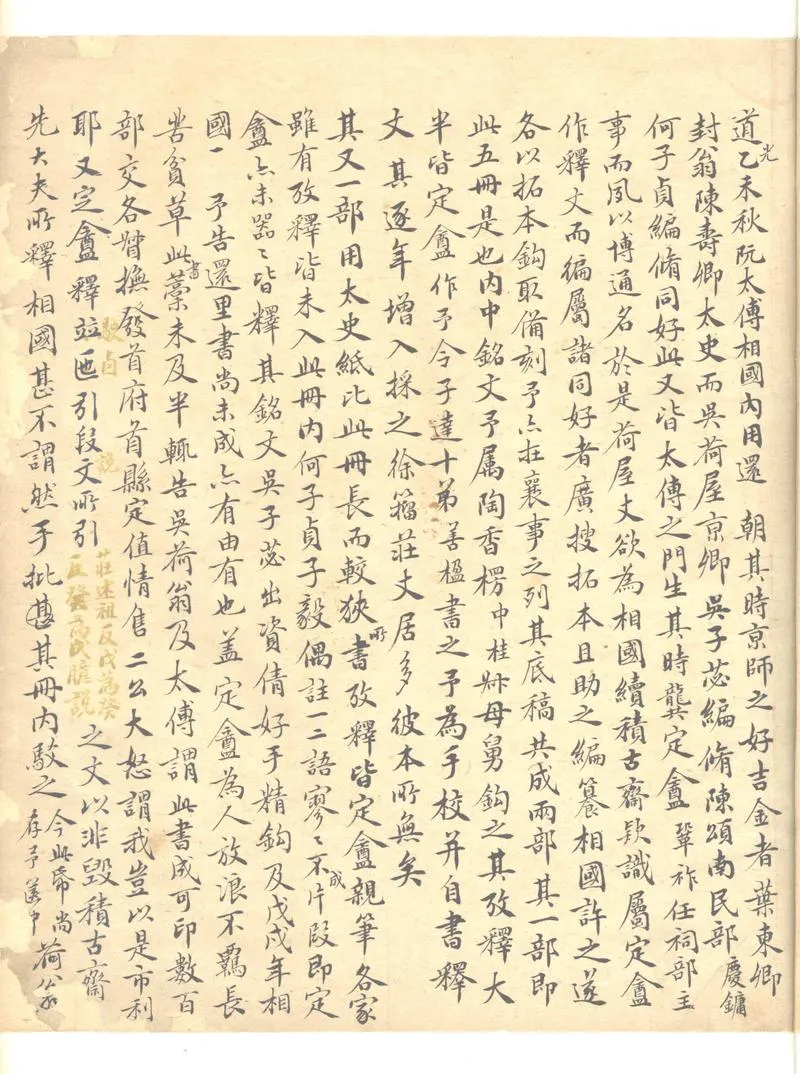 道光乙未秋阮太傅相國內用還　朝其時京師之好吉金者葉東卿
封翁陳壽卿太史而吳荷屋京卿吳子苾編脩陳頌南民部慶鏞
何子貞編脩同好此又皆太傅之門生其時龔定盦鞏祚任祠部主
事而夙以博通名於是荷屋丈欲為相國續積古齋欵識屬定盦
作釋文而徧屬諸同好者廣搜拓本且助之編篡相國許之遂
各以拓本鈎取備刻予亦在襄事之列其底稿共成兩部其一部即
此五冊是也內中銘文予属陶香楞中桂舜母舅鈎之其攷釋大
半皆定盦作予令子達十弟善楹書之予為手校并自書釋
文　其逐年增入採之徐籀莊丈居多彼本所無矣
其又一部用太史紙比此冊長而較狹所書攷釋皆定盦親筆各家
雖有攷釋皆未入此冊內何子貞子毅偶註一二語寥〻不成片段即定
盦亦未器〻皆釋其銘文吳子苾出資倩好手精鈎及戊戌年相
國一　予告還里書尚未成亦有由有也盖定盦為人放浪不羈長
苦貧草此書藁未及半輒告吳荷翁及太傅謂此書成可印數百
部交各督撫發首府首縣定值情售二公大怒謂我豈以是市利
耶又定盦釋竝匜引段文所引
駁
說
莊述祖反戊為癸
之文以非毀積古齋
先大夫所釋相國甚不謂然手批其冊內駁之今此帋尚存予篋中荷翁